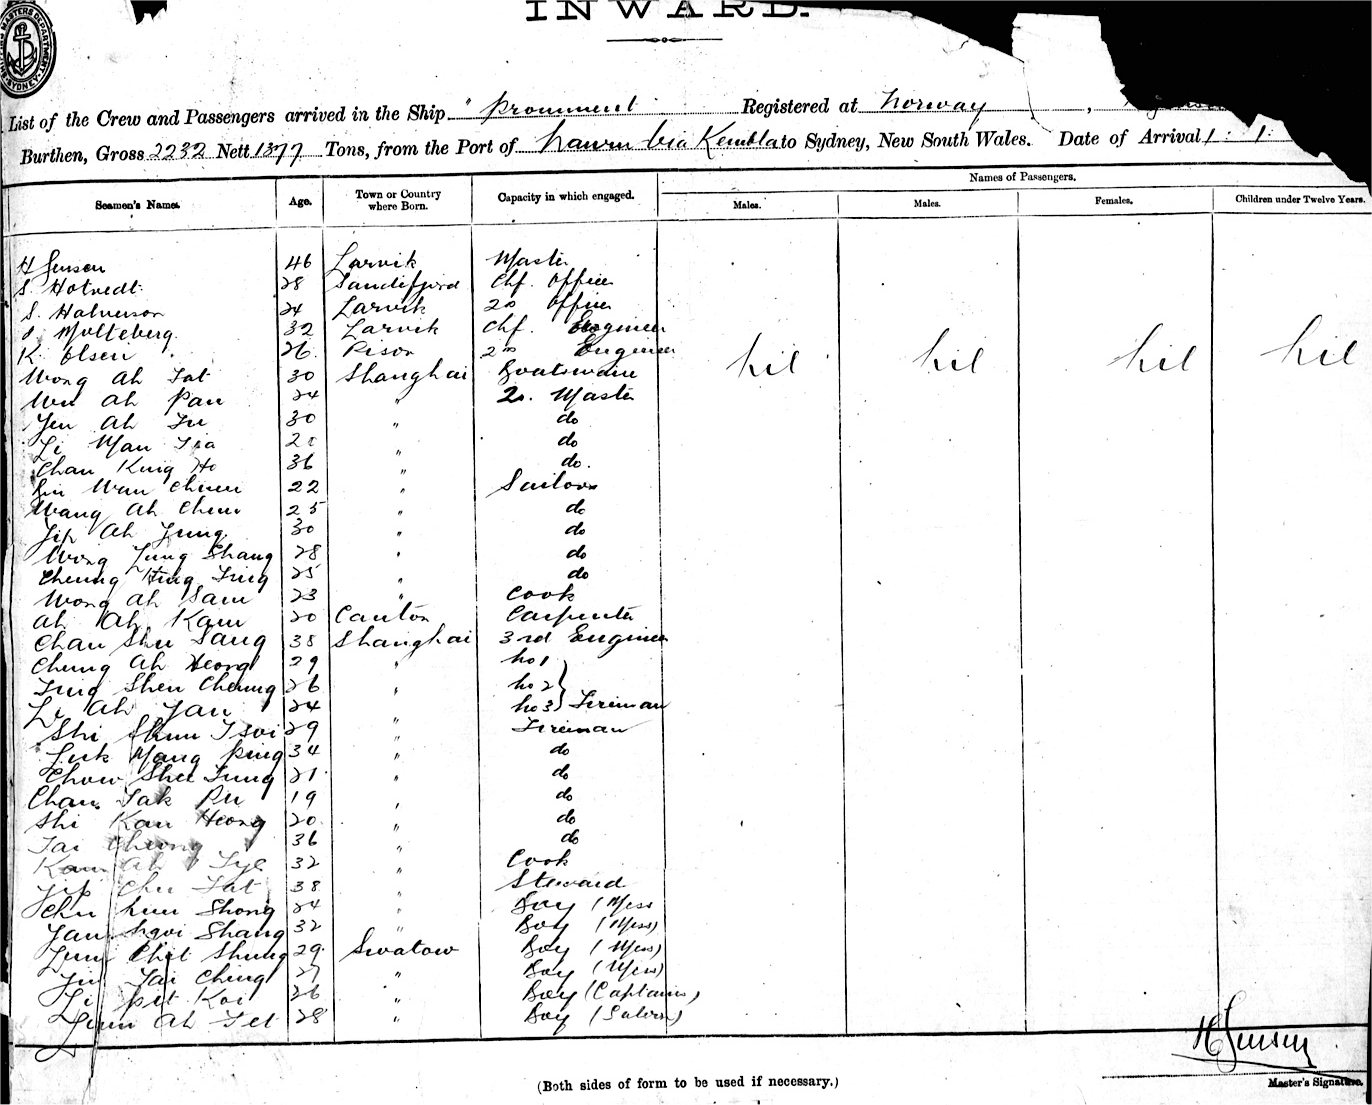 INWARD.
List of the Crew and Passengers arrived in the Ship "Prominent" Registered at Norway
Burthen, Gross 2232 Nett 1377 Tons, from the Port of via Kembla to Sydney, New South Wales. Date of Arrival 1 : 1 :
Names of Passengers.
Seamen's Names. Age. Town or Country where Born. Capacity in which engaged. Males. Males. Females. Children under Twelve Years.
H Jensen 46 Larvik Master
S. Hotvedt 28 Sandefjord Chf. Officer
S. Halverson 24 Larvik 2o Officer
Molteberg 32 Larvik Chf. Engineer
K. Olsen 26 Risor 2o Engineer
Nil Nil Nil Nil
Wong Ah Fat 30 Shanghai Boatswain
Wu Ah Pau 24 " 2o. Master
Yeu Ah Fu 30 " do
Li Man 20 " do
Chan King Ho 36 " do.
Wan Chuen 22 " Sailors
Wang Ah Chun 25 " do
Jip Ah Jung 30 " do
Wong Jung Shang 28 " do
Cheung Hing Ting 25 " do
Wong Ah Sam 23 " Cook
Ah Ah Kam 20 Canton Carpenter
Chan Shu Sang 38 Shanghai 3rd Engineer
Cheung Ah Heong 29 " No 1
Ting Shen Cheung 26 " No 2
Li Ah Yan 24 " No 3 Fireman
Shi Shun Tsoi 29 " Fireman
Luk Yang Ping 34 " do
Chow Shu Tung 21 " do
Chan Tak Pu 19 " do
Shi Kan Heong 20 " do
Tai Cheong 36 " do
Kam Ah Tye 32 " Cook
Jip Chu Fat 38 " Steward
Chu Shong 24 " Boy (Mess
Yan Shang 32 " Boy (Mess)
Chit Shung 29 Swatow Boy (Mess)
Tai Ching 27 " Boy (Mess)
Li Pit Koi 26 " Boy (Captains)
Ah 28 " Boy (Saloon)
H Jensen
Master's Signature.
(Both sides of form to be used if necessary.)